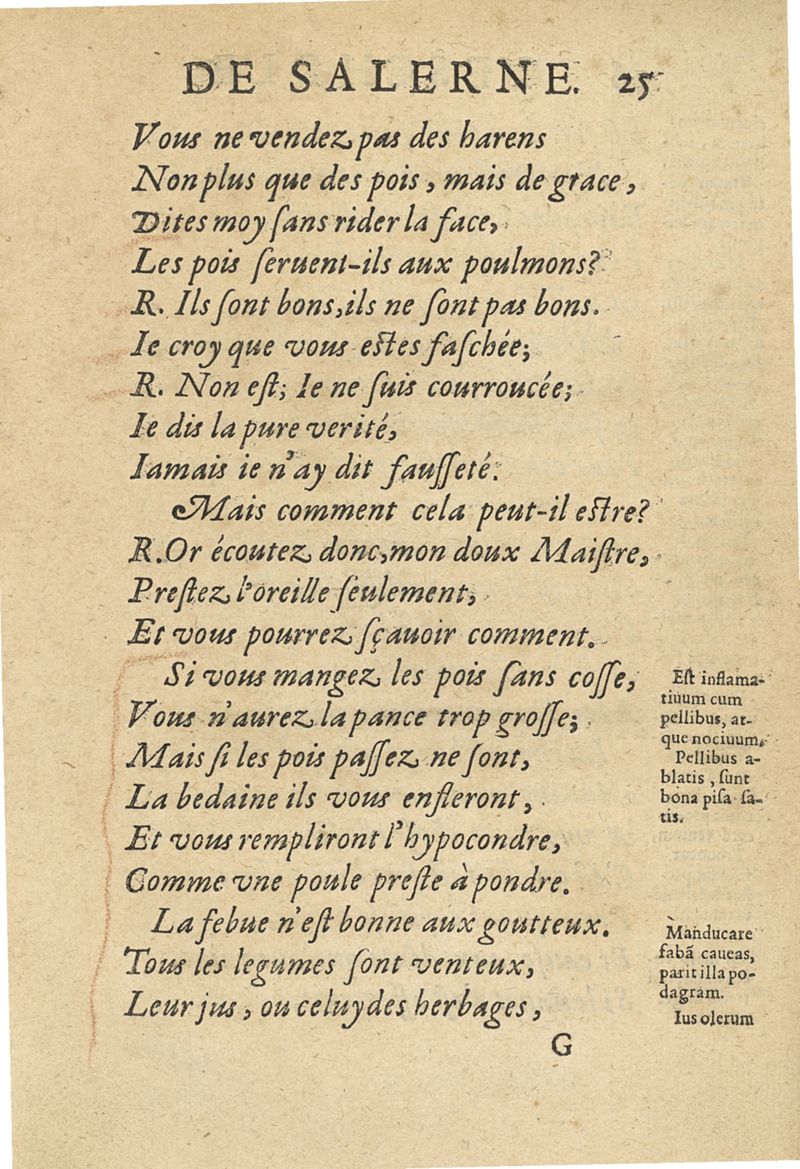 DE SALERNE. 25
Vous ne vendez pas des harens
Non plus que des pois, mais de grace,
Dites moy ſans rider la face,
Les pois ſeruent-ils aux poulmons?
R. Ils ſont bons, ils ne ſont pas bons.
Ie croy que vous eſtes faſchée;
R. Non eſt; Ie ne ſuis courroucée;
Ie dis la pure verité,
Iamais ie n'ay dit fauſſeté.
Mais comment cela peut-il eſtre?
R. Or écoutez donc, mon doux Maiſtre,
Preſtez l'oreille ſeulement,
Et vous pourrez ſçauoir comment.
Si vous mangez les pois ſans coſſe,
Vous n'aurez la pance trop groſſe;
Mais ſi les pois paſſez ne ſont,
La bedaine ils vous enfleront,
Et vous rempliront l'hypocondre,
Comme vne poule preſte à pondre.
La febue n'eſt bonne aux goutteux.
Tous les legumes ſont venteux,
Leur jus, ou celuy des herbages,
Eſt inflama-
tiuum cum
pellibus, at-
que nociuum.
Pellibus a-
blatis, ſunt
bona piſa ſa-
tis.
Manducare
fabã caueas,
parit illa po-
dagram.
Ius olerum
G